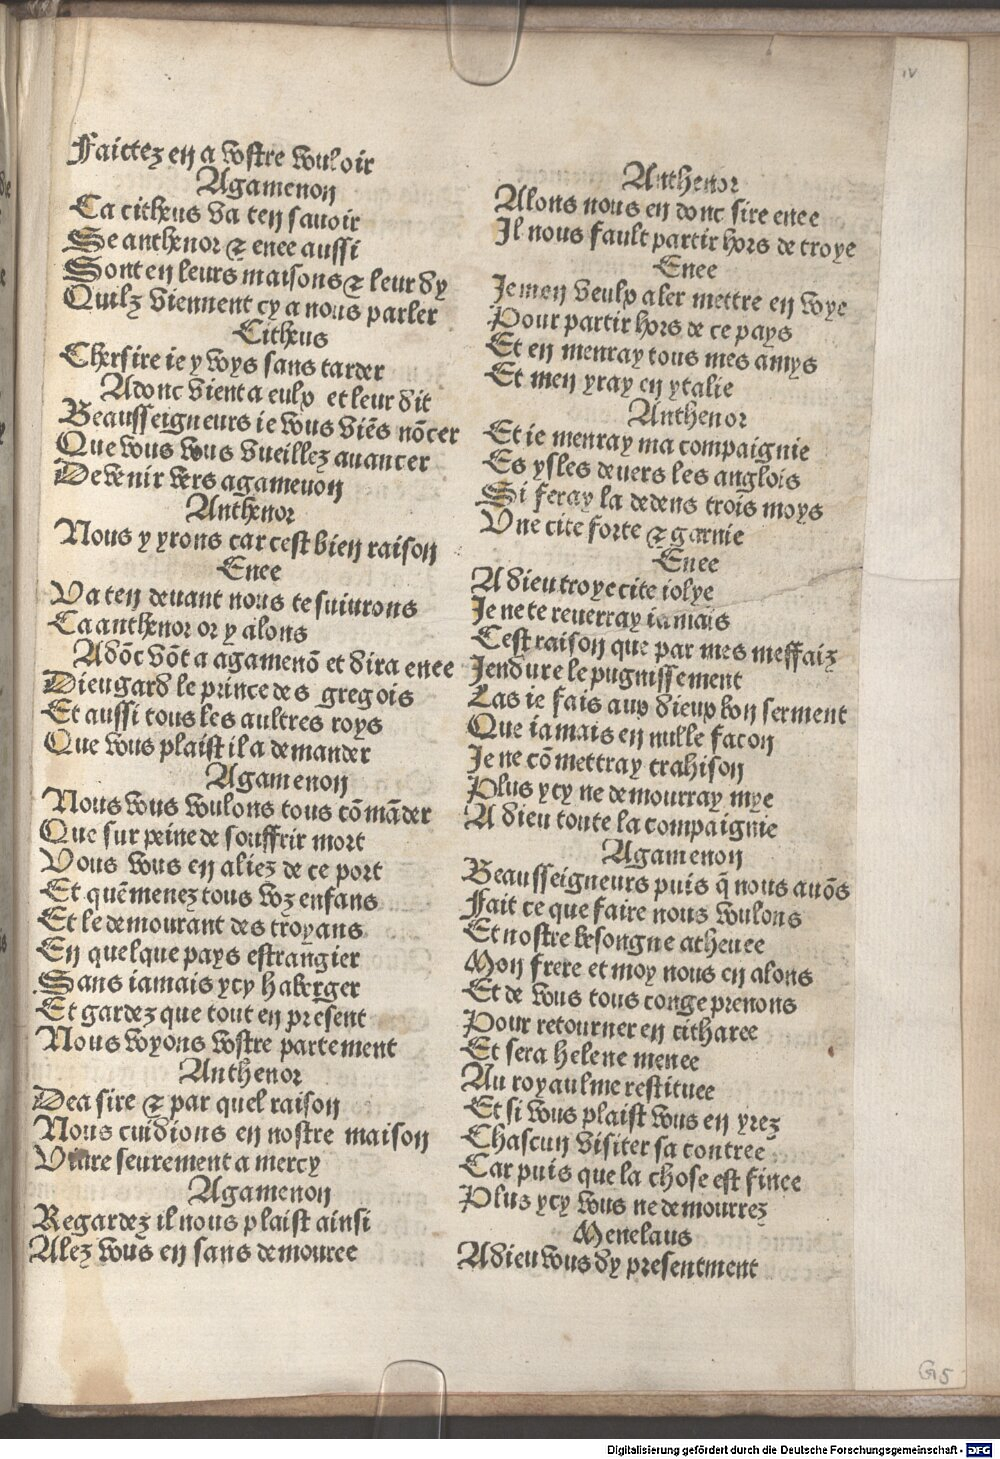 Faictez en a vostre vouloir
Agamenon
Ca citheus va ten sauoir
Se anthenor & enee aussi
Sont en leurs maisons & leur dy
Quilz viennent cy a nous parler
Citheus
Cher sire ie y voys sans tarder
Adonc vient a eulx et leur dit
Beausseigneurs ie vous viẽs nõcer
Que vous vous vueillez auancer
De venir vers agamenon
Anthenor
Nous y yrons car cest bien raison
Enee
Va ten deuant nous te suiurons
Ca anthenor or y alons
Adõc võt a agamenõ et dira enee
Dieu gard le prince des gregois
Et aussi tous les aultres roys
Que vous plaist il a demander
Agamenon
Nous vous voulons tous cõmãder
Que sur peine de souffrir mort
Vous vous en aliez de ce port
Et quẽmenez tous voz enfans
Et le demourant des troyans
En quelque pays estrangier
Sans iamais ycy haberger
Et gardez que tout en present
Nous voyons vostre partement
Anthenor
Dea sire & par quel raison
Nous cuidions en nostre maison
Viure seurement a mercy
Agamenon
Regardez il nous plaist ainsi
Alez vous en sans demouree
Anthenor
Alons nous en donc sire enee
Il nous fault partir hors de troye
Enee
Je men veulx aler mettre en voye
Pour partir hors de ce pays
Et en menray tous mes amys
Et men yray en ytalie
Anthenor
Et ie menray ma compaignie
Es ysles deuers les anglois
Si feray la dedens trois moys
Vne cite forte & garnie
Enee
A dieu troye cite iolye
Je ne te reuerray iamais
Cest raison que par mes meffaiz
Jendure le pugnissement
Las ie fais aux dieux bon serment
Que iamais en nulle facon
Je ne cõmettray trahison
Plus ycy ne demourray mye
A dieu toute la compaignie
Agamenon
Beausseigneurs puis q̃ nous auõs
Fait ce que faire nous voulons
Et nostre besongne acheuee
Mon frere et moy nous en alons
Et de vous tous conge prenons
Pour retourner en citharee
Et sera helene menee
Au royaulme restituee
Et si vous plaist vous en yrez
Chascun visiter sa contree
Car puis que la chose est finee
Plus ycy vous ne demourrez
Menelaus
A dieu vous dy presentment
G 5
Digitalisierung gefördert durch die Deutsche Forschungsgemeinschaft - DFG